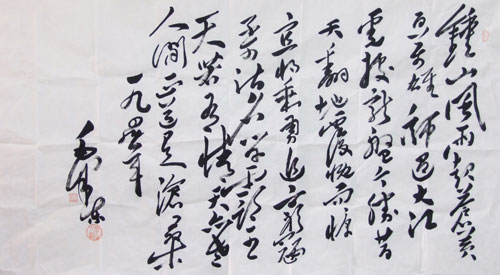 鍾山風雨起蒼黃
百万雄師過大江
虎踞龍盤今勝昔
天翻地覆慨而慷
宜將剩勇追窮寇
不可沽名學霸王
天若有情天亦老
人間正道是滄桑
毛澤東